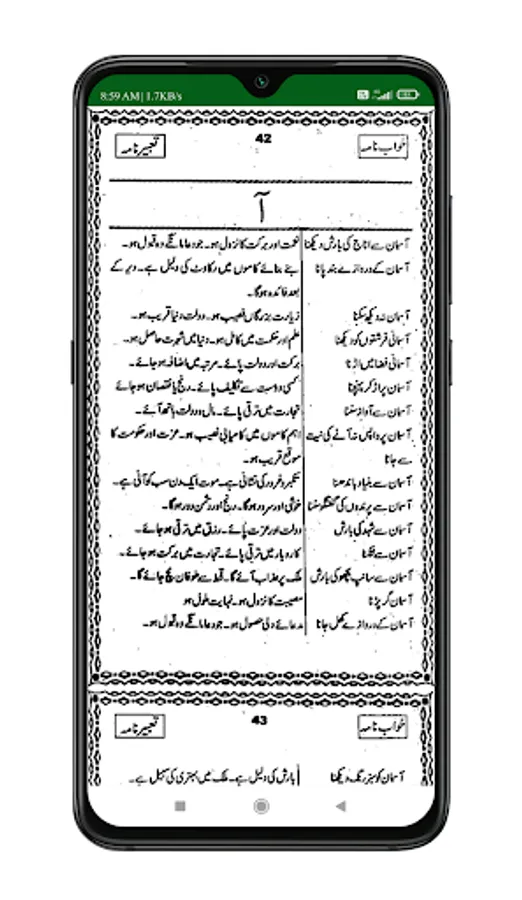 8:59 AM | 1.7KB/s
خواب نامہ 42 تعبیر نامہ
آ
آسمان سے اناج کی بارش دیکھنا نعمت اور برکت کا نزول ہو۔ جو دعا مانگے وہ قبول ہو۔
آسمان کے دروازے بند پانا بنے بنائے کاموں میں رکاوٹ کی دلیل ہے۔ دیر کے
بعد فائدہ ہوگا۔
آسمان نہ دیکھ سکنا زیارت بزرگاں نصیب ہو۔ دولت دنیا قریب ہو۔
آسمانی فرشتوں کو دیکھنا علم اور حکمت میں کامل ہو۔ دنیا میں شہرت حاصل ہو۔
آسمانی فضا میں اڑنا برکت اور دولت پائے۔ مرتبہ میں اضافہ ہو جائے۔
آسمان پر اڑ کر پہنچنا کسی دوست سے تکلیف پائے۔ رنج یا نقصان ہو جائے
آسمان سے آواز سننا تجارت میں ترقی پائے۔ مال و دولت ہاتھ آئے۔
آسمان پر واپس نہ آنے کی نیت اہم کاموں میں کامیابی نصیب ہو۔ عزت اور حکومت کا
سے جانا موقع قریب ہو۔
آسمان سے بنیاد باندھنا تکبر و غرور کی نشانی ہے۔ موت ایک دن سب کو آنی ہے۔
آسمان سے پرندوں کی گفتگو سننا خوشی اور سرور ہوگا۔ رنج اور دشمن دور ہوگا۔
آسمان سے شہد کی بارش دولت اور عزت پائے۔ رزق میں ترقی ہو جائے۔
آسمان سے لٹکنا کاروبار میں ترقی پائے۔ تجارت میں برکت ہو جائے۔
آسمان سے سانپ بچھو کی بارش ملک پر عذاب آئے گا۔ قحط سے طوفان مچ جائے گا۔
آسمان گر پڑنا مصیبت کا نزول ہو۔ نہایت طول ہو
آسمان کے دروازے کھل جانا مدعائے دلی حصول ہو۔ جو دعا مانگے وہ قبول ہو۔
خواب نامہ 43 تعبیر نامہ
آسمان کو سبز رنگ دیکھنا بارش کی دلیل ہے۔ ملک میں بہتری کی سبیل ہے۔